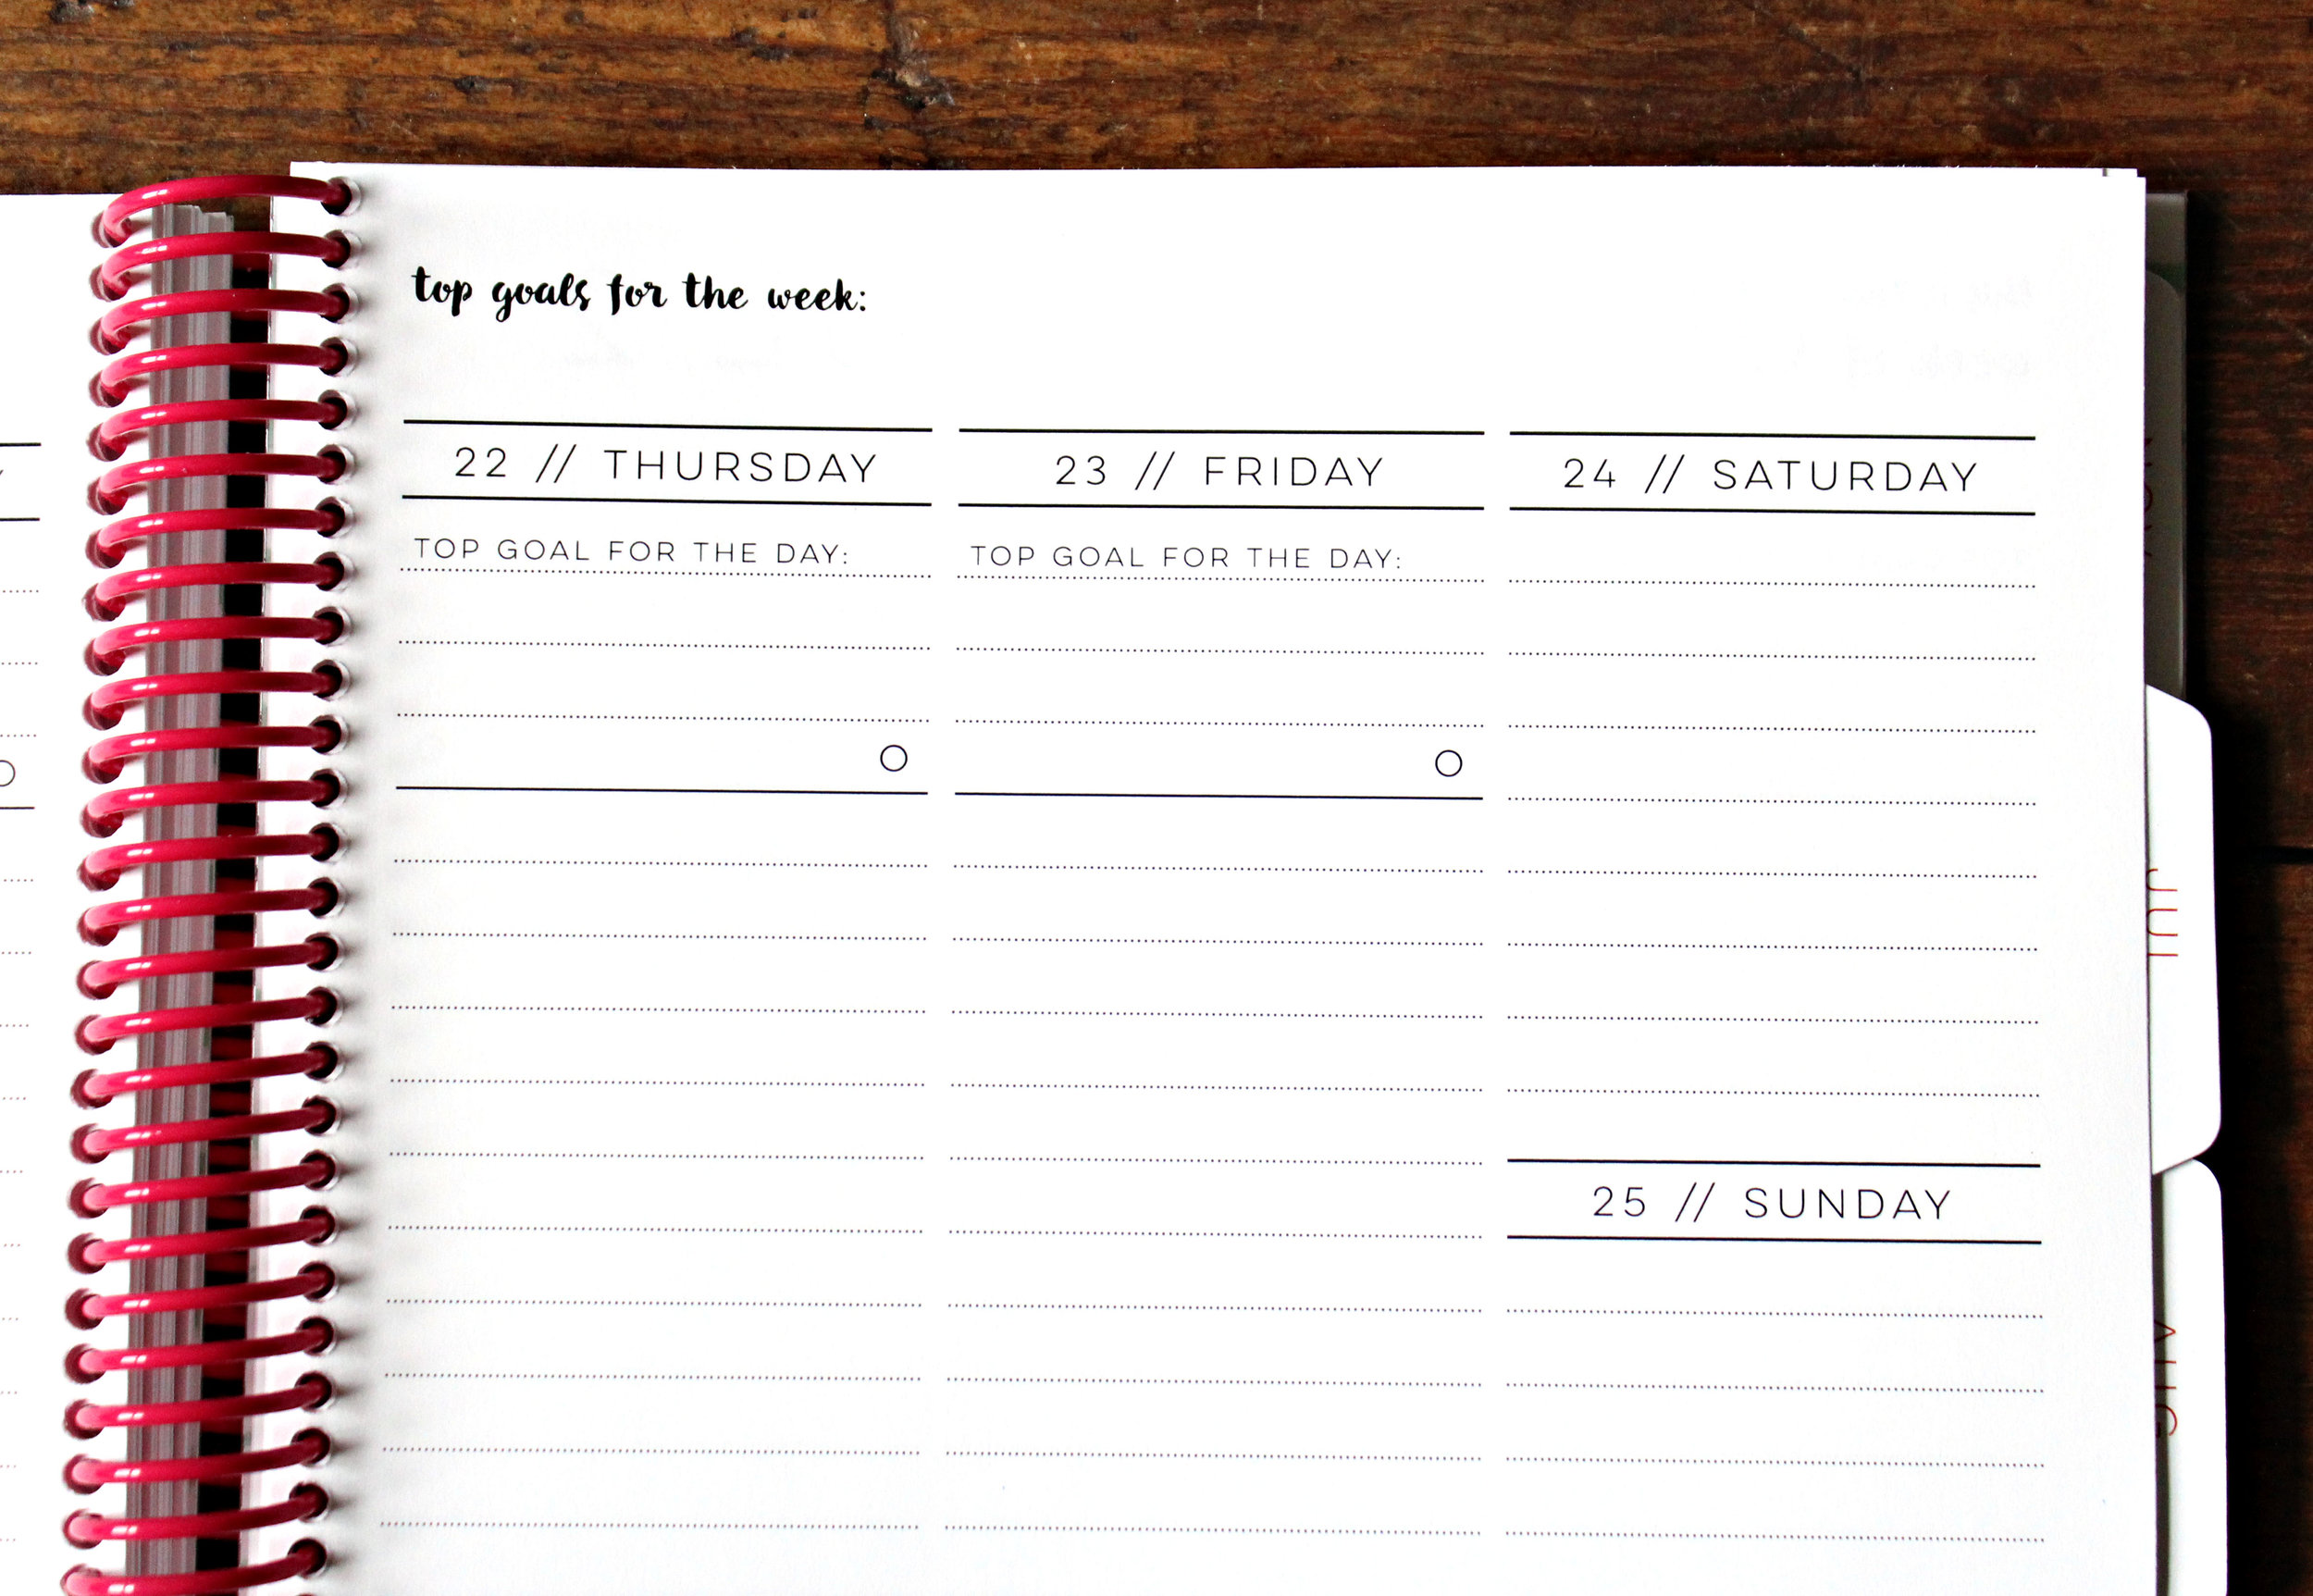 top goals for the week:
22 // THURSDAY
TOP GOAL FOR THE DAY:
23 // FRIDAY
TOP GOAL FOR THE DAY:
24 // SATURDAY
25 // SUNDAY
JUL
AUG